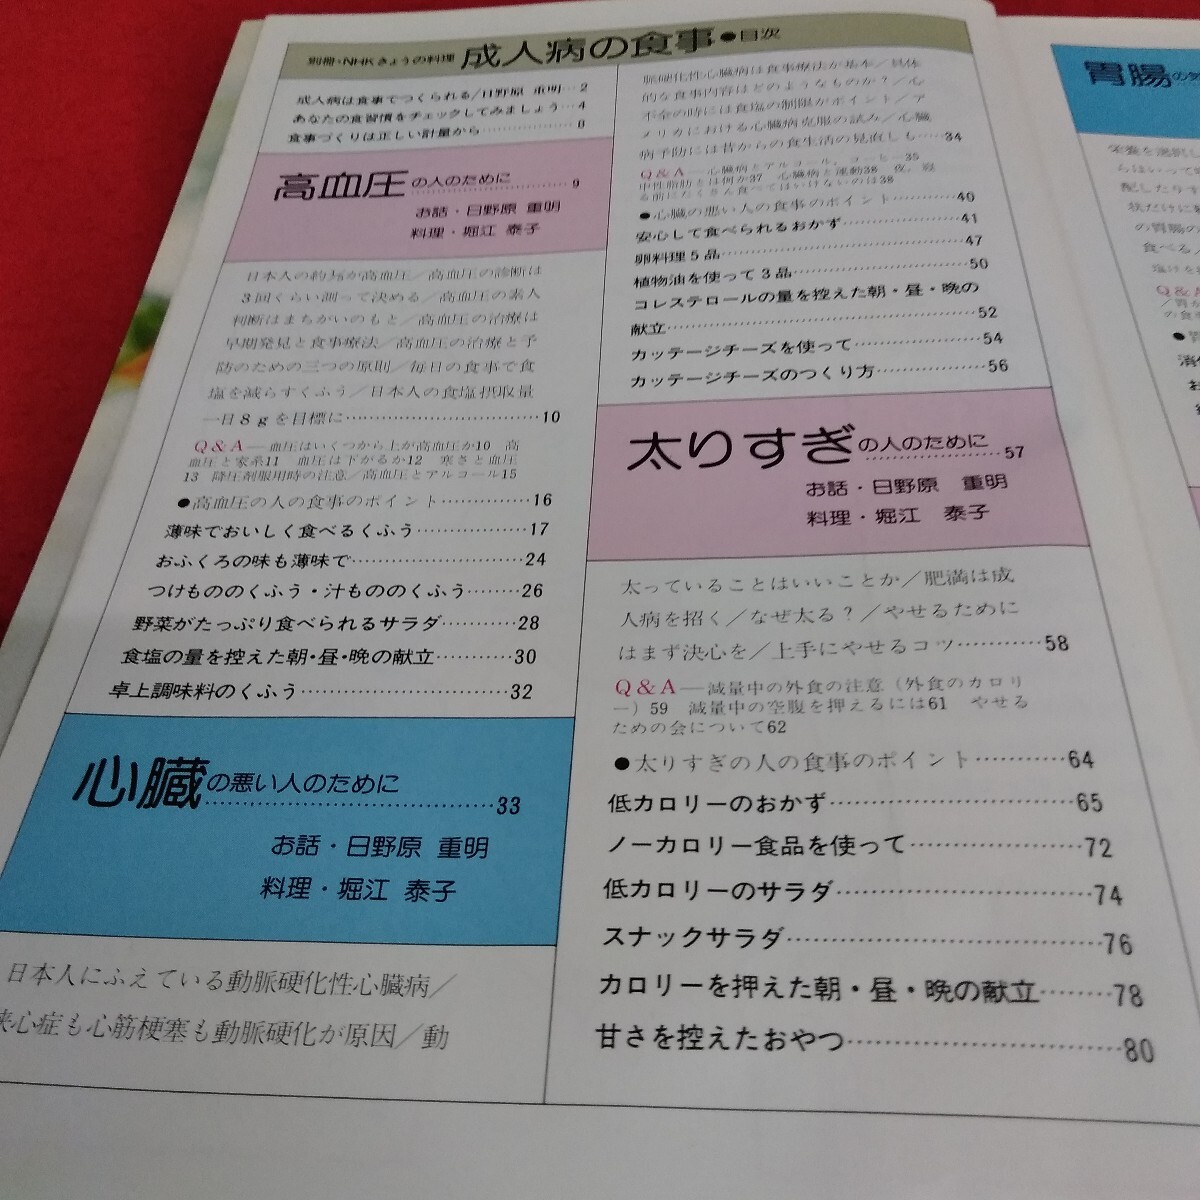 別冊・NHKきょうの料理 成人病の食事●目次
成人病は食事でつくられる/日野原 重明…2
あなたの食習慣をチェックしてみましょう…4
食事づくりは正しい計量から………………8
高血圧の人のために……………………9
お話・日野原 重明
料理・堀江 泰子
日本人の約⅓が高血圧/高血圧の診断は
3回くらい測って決める/高血圧の素人
判断はまちがいのもと/高血圧の治療は
早期発見と食事療法/高血圧の治療と予
防のための三つの原則/毎日の食事で食
塩を減らすくふう/日本人の食塩摂取量
一日8gを目標に…………………………10
Q&A―血圧はいくつから上が高血圧か10 高
血圧と家系11 血圧は下がるか12 寒さと血圧
13 降圧剤服用時の注意/高血圧とアルコール15
●高血圧の人の食事のポイント…………16
薄味でおいしく食べるくふう……………17
おふくろの味も薄味で……………………24
つけもののくふう・汁もののくふう………26
野菜がたっぷり食べられるサラダ…………28
食塩の量を控えた朝・昼・晩の献立…………30
卓上調味料のくふう…………………………32
心臓の悪い人のために…………………………33
お話・日野原 重明
料理・堀江 泰子
日本人にふえている動脈硬化性心臓病/
狭心症も心筋梗塞も動脈硬化が原因/動
脈硬化性心臓病は食事療法が基本/具体
的な食事内容はどのようなものか?/心
不全の時には食塩の制限がポイント/ア
メリカにおける心臓病克服の試み/心臓
病予防には昔からの食生活の見直しも……34
Q&A―心臓病とアルコール、コーヒー35
中性脂肪とは何か37 心臓病と運動38 夜、寝
る前にたくさん食べてはいけないのは38
●心臓の悪い人の食事のポイント…………40
安心して食べられるおかず…………………41
卵料理5品……………………………………47
植物油を使って3品…………………………50
コレステロールの量を控えた朝・昼・晩の
献立……………………………………………52
カッテージチーズを使って…………………54
カッテージチーズのつくり方………………56
太りすぎの人のために…………………57
お話・日野原 重明
料理・堀江 泰子
太っていることはいいことか/肥満は成
人病を招く/なぜ太る?/やせるために
はまず決心を/上手にやせるコツ…………58
Q&A―減量中の外食の注意(外食のカロリ
ー)59 減量中の空腹を押えるには61 やせる
ための会について62
●太りすぎの人の食事のポイント…………64
低カロリーのおかず…………………………65
ノーカロリー食品を使って…………………72
低カロリーのサラダ…………………………74
スナックサラダ………………………………76
カロリーを押えた朝・昼・晩の献立………78
甘さを控えたおやつ…………………………80
胃腸の
栄養を選択し
らはいって
配したりす
状だけに
の胃腸の
食べる/
Q&A